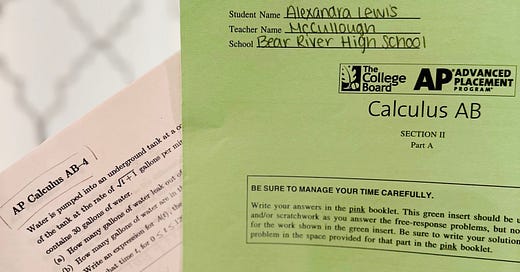 Student Name Alexandra Lewis
Teacher Name McCullough
School Bear River High School
The College Board
AP ADVANCED PLACEMENT PROGRAM
Calculus AB
SECTION II
Part A
BE SURE TO MANAGE YOUR TIME CAREFULLY.
Write your answers in the pink booklet. This green insert should be
and/or scratchwork as you answer the free-response problems, but no
for the work shown in the green insert. Be sure to write your solution
problem in the space provided for that part in the pink booklet.
AP Calculus AB-4
Water is pumped into an underground tank at a
of the tank at the rate of √t+1 gallons per
contains 30 gallons of water.
(a) How many gallons of water leak out
How many gallons of water are in
Write an expression for A(t), the
that time t, for 0 ≤ t ≤